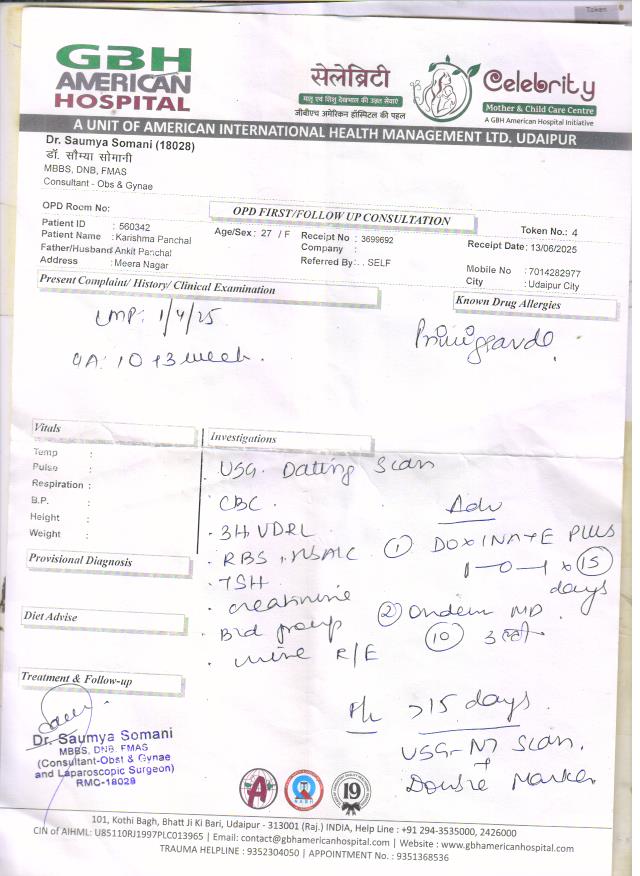 Token
GBH
AMERICAN
HOSPITAL
सेलेब्रिटी
मातृ एवं शिशु देखभाल की उन्नत सेवाएं
जीबीएच अमेरिकन हॉस्पिटल की पहल
Celebrity
Mother & Child Care Centre
A GBH American Hospital Initiative
A UNIT OF AMERICAN INTERNATIONAL HEALTH MANAGEMENT LTD. UDAIPUR
Dr. Saumya Somani (18028)
डॉ. सौम्या सोमानी
MBBS, DNB, FMAS
Consultant - Obs & Gynae
OPD Room No:
OPD FIRST/FOLLOW UP CONSULTATION
Token No.: 4
Patient ID : 560342
Age/Sex : 27 / F
Receipt No : 3699692
Receipt Date: 13/06/2025
Patient Name : Karishma Panchal
Company :
Father/Husband Ankit Panchal
Referred By: . . SELF
Mobile No : 7014282977
Address : Meera Nagar
City : Udaipur City
Present Complaint/ History/ Clinical Examination
Known Drug Allergies
LMP: 1/4/25
GA: 10+3 week.
Vitals
Temp :
Pulse :
Respiration :
B.P. :
Height :
Weight :
Provisional Diagnosis
Diet Advise
Treatment & Follow-up
Investigations
USG. Dating Scan
. CBC.
. 3H, VDRL
. RBS,
. TSH
. creatinine
. Bld group
. urine R/E
Adv
① DOXINATE PLUS
1-0-1 x 15
days
② Ondem MD
10
>15 days.
USG-NT Scan.
+
Double Marker
Dr. Saumya Somani
MBBS, DNB, FMAS
(Consultant-Obst & Gynae
and Laparoscopic Surgeon)
RMC-18028
A
NABH
19
101, Kothi Bagh, Bhatt Ji Ki Bari, Udaipur - 313001 (Raj.) INDIA, Help Line : +91 294-3535000, 2426000
CIN of AIHML: U85110RJ1997PLC013965 | Email: contact@gbhamericanhospital.com | Website : www.gbhamericanhospital.com
TRAUMA HELPLINE : 9352304050 | APPOINTMENT No. : 9351368536